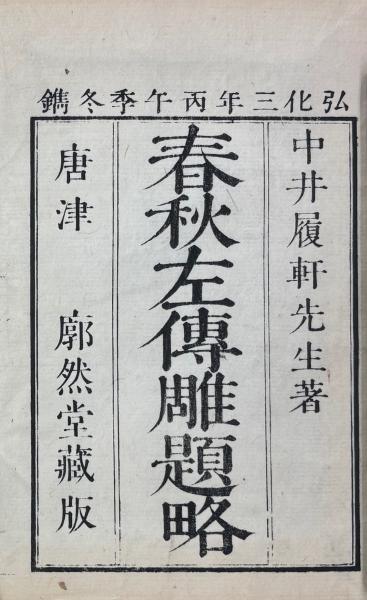 弘化三年丙午季冬鐫
中井履軒先生著
春秋左傳雕題略
唐津 廓然堂藏版